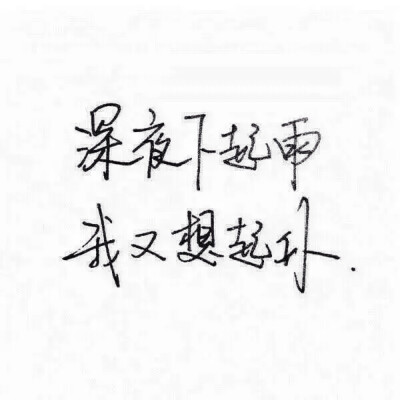 深夜下起雨
我又想起你.